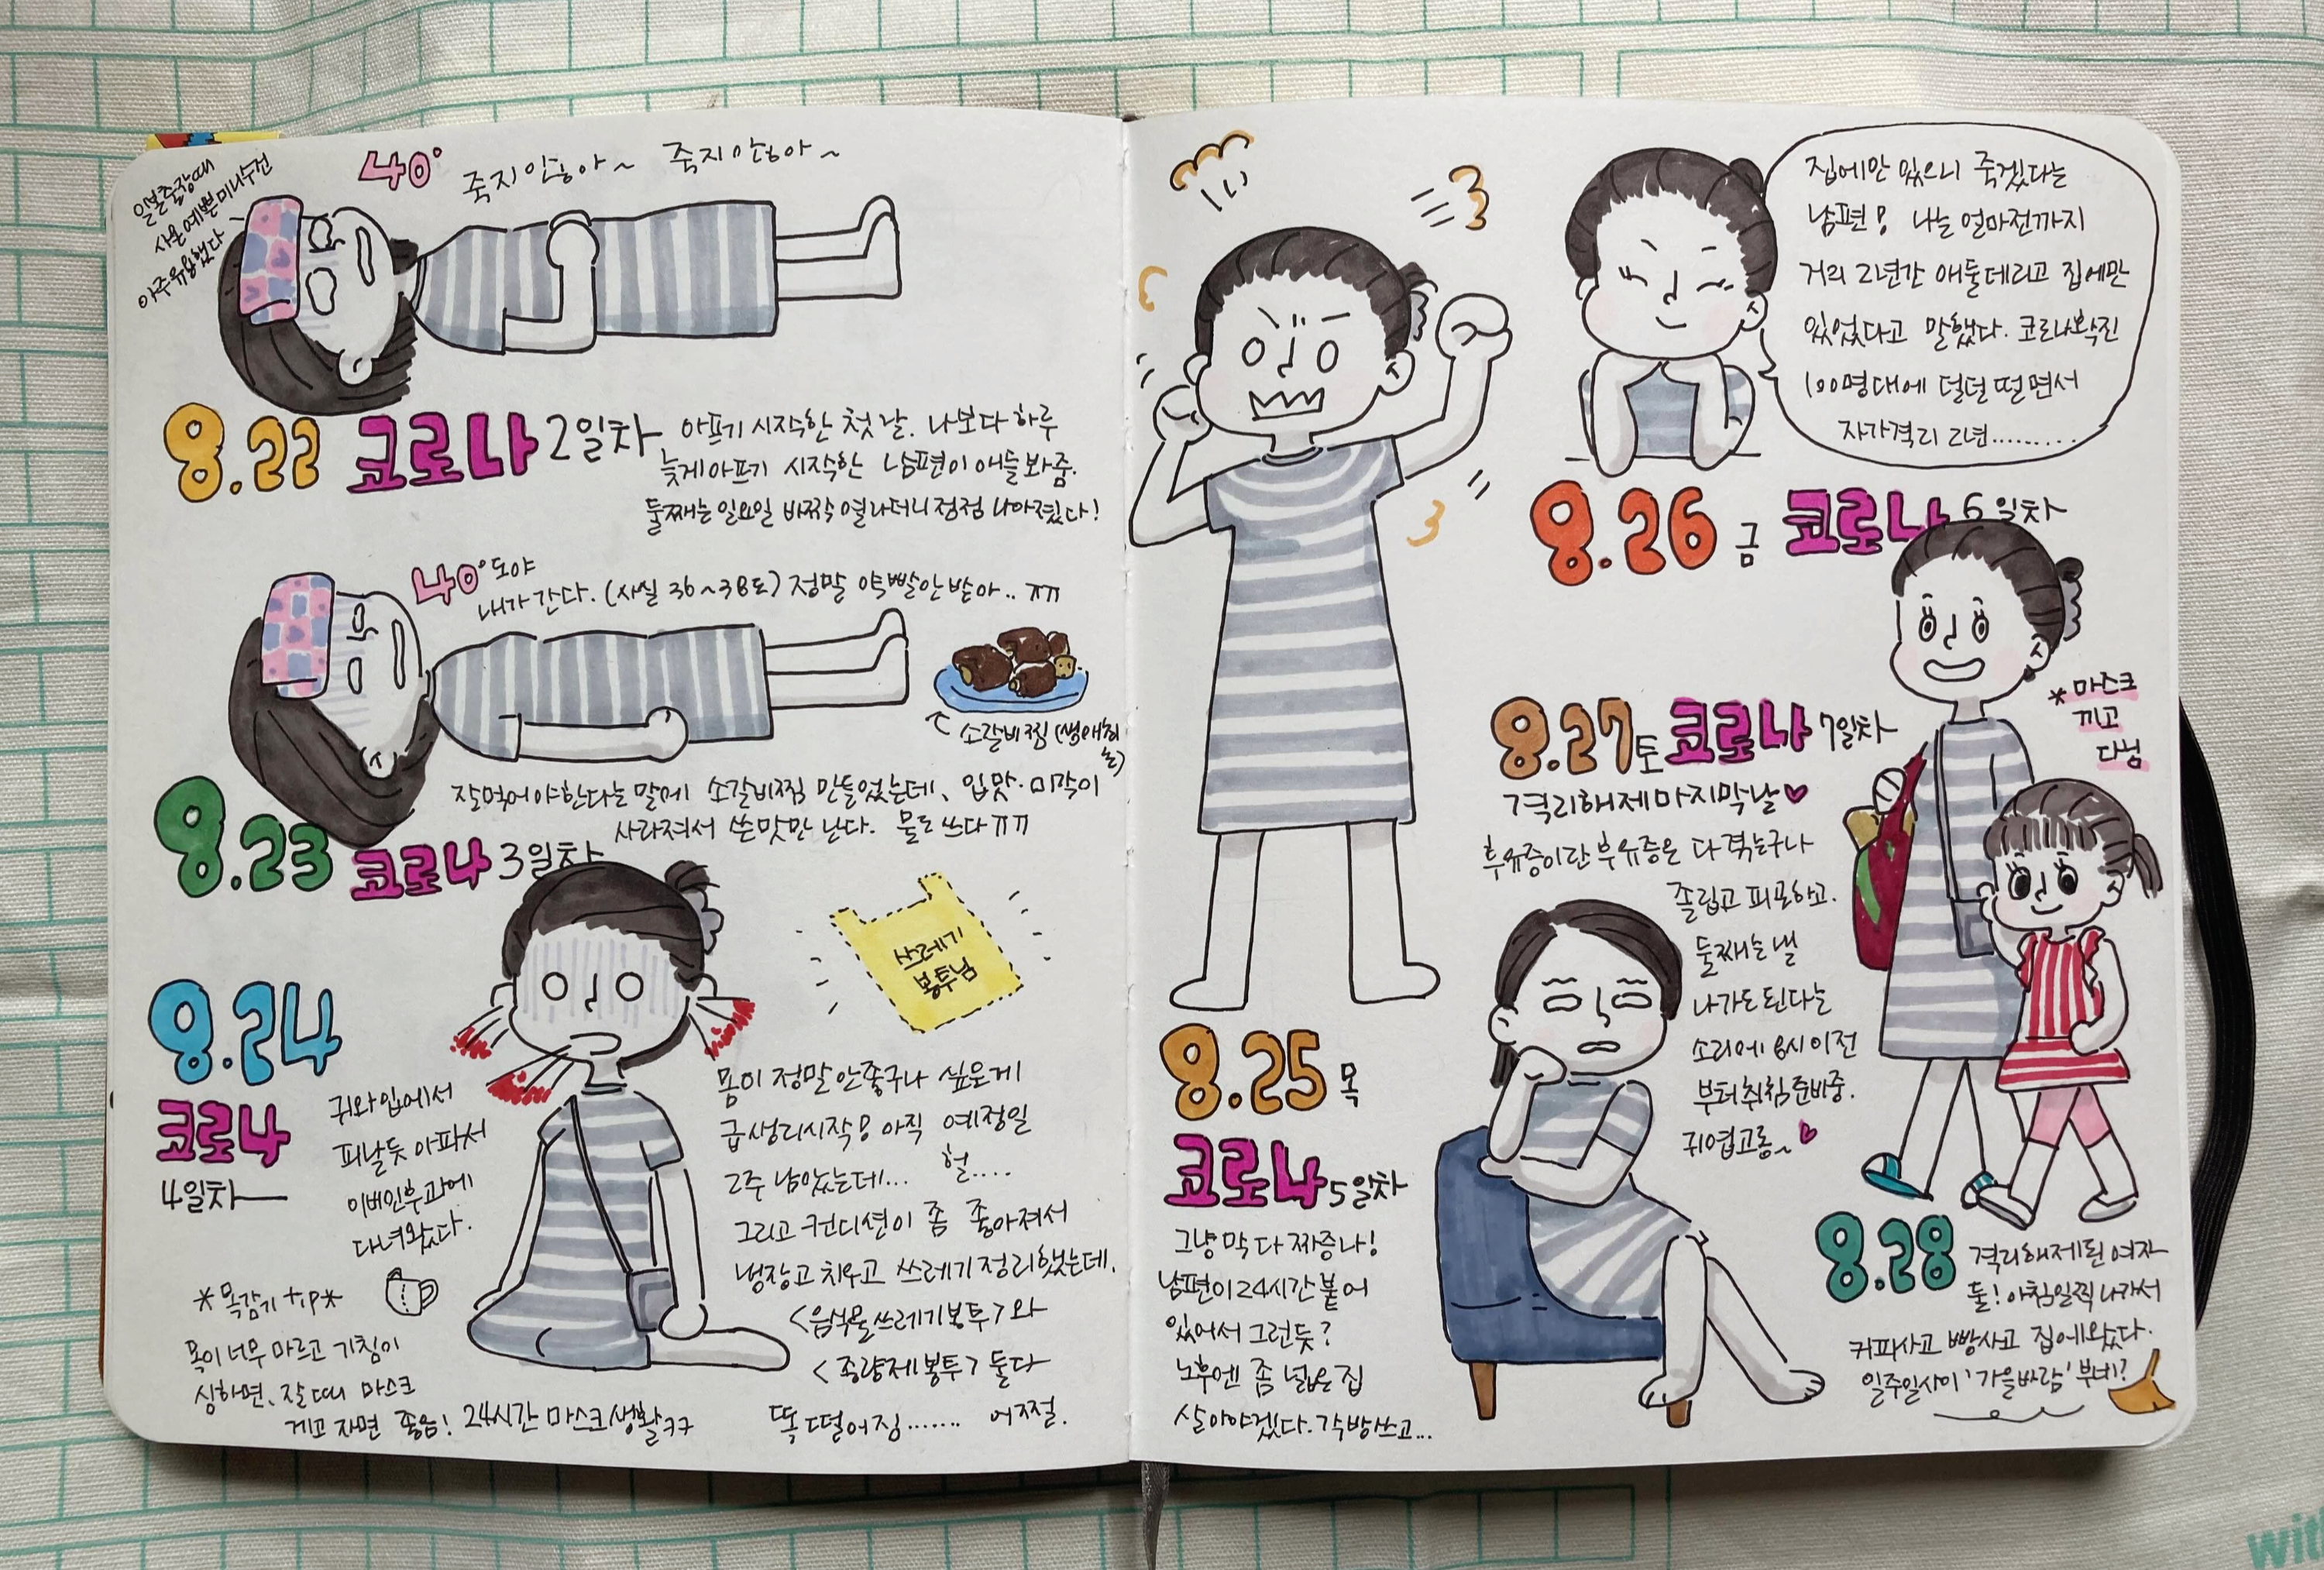 일본출장때
사온 예쁜 미니수건
아주유용했다
40°
죽지않아~ 죽지않아~
8.22 코로나 2일차
아프기 시작한 첫 날. 나보다 하루
늦게 아프기 시작한 남편이 애들 봐줌.
둘째는 일요일 바짝 열나더니 점점 나아졌다!
40°도야
내가 간다. (사실 36~38도) 정말 약빨안받아.. ㅠㅠ
소갈비찜 (생애최
초)
8.23 코로나 3일차
잘먹어야한다는 말에 소갈비찜 만들었는데, 입맛·미각이
사라져서 쓴맛만 난다. 물도 쓰다ㅠㅠ
8.24
코로나
4일차
귀와입에서
피날듯 아파서
이비인후과에
다녀왔다.
*목감기 tip*
목이 너무 마르고 기침이
심하면, 잘 때 마스크
끼고 자면 좋음! 24시간 마스크생활ㅋㅋ
쓰레기
봉투님
몸이 정말 안좋구나 싶은게
급생리시작! 아직 예정일
2주 남았는데... 헐....
그리고 컨디션이 좀 좋아져서
냉장고 치우고 쓰레기정리했는데.
<음식물쓰레기봉투>와
<종량제봉투> 둘다
똑 떨어짐....... 어쩔.
8.25 목
코로나 5일차
그냥 막 다 짜증나!
남편이 24시간 붙어
있어서 그런듯?
노후엔 좀 넓은 집
살아야겠다. 각방쓰고...
집에만 있으니 죽겠다는
남편! 나는 얼마전까지
거의 2년간 애둘데리고 집에만
있었다고 말했다. 코로나확진
100명대에 덜덜 떨면서
자가격리 2년.........
8.26 금 코로나 6일차
8.27 토 코로나 7일차
격리해제 마지막날♥
후유증이란 후유증은 다 겪는구나
졸립고 피곤하고.
둘째는 낼
나가도 된다는
소리에 8시 이전
부터 취침 준비중.
귀엽고롱~♥
*마스크
끼고
다님
8.28
격리해제된 여자
둘! 아침일찍 나가서
커피사고 빵사고 집에왔다.
일주일사이 '가을바람' 부네?